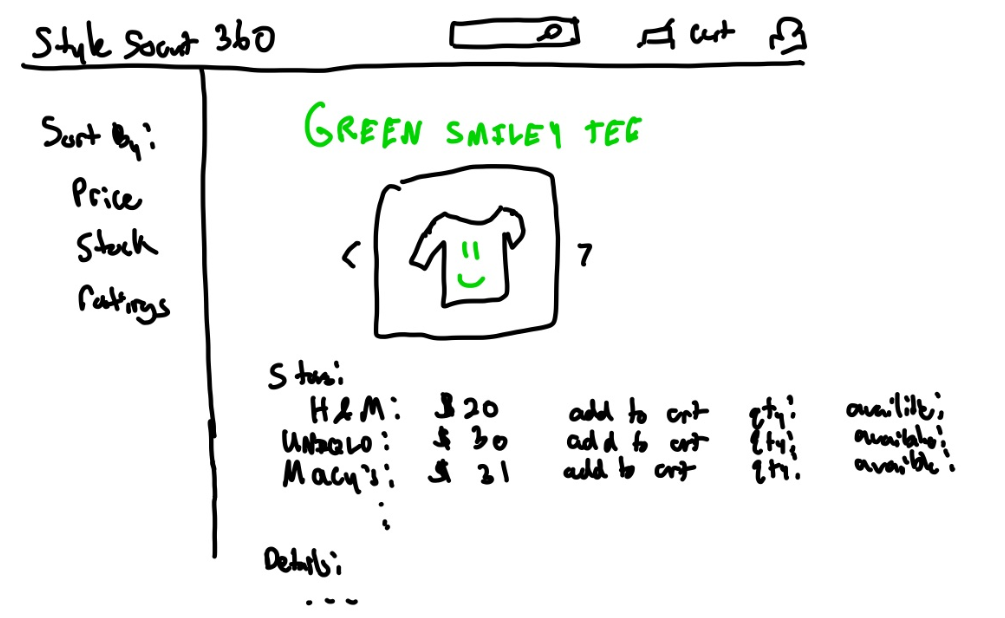 Style Scout 360 cart
Sort By:
Price
Stock
ratings
GREEN SMILEY TEE
< >
Stores:
H&M: $20 add to cart qty: available:
UNIQLO: $30 add to cart qty: available:
Macy's: $31 add to cart qty: available:
Details:
---